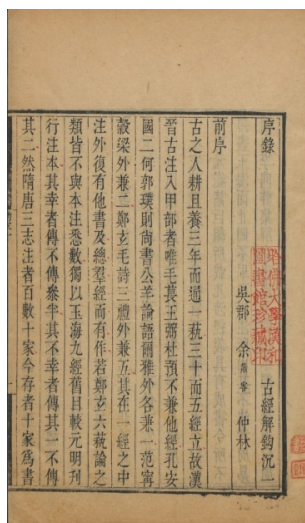 序錄 古經解鉤沉一
吳郡 余蕭客 仲林
前序
古之人耕且養三年而通一萟三十而五經立故漢
晉古注入甲部者唯毛萇王弼杜預不兼他經孔安
國二何郭璞則尚書公羊論語爾雅外各兼一范甯
穀梁外兼二鄭玄毛詩三禮外兼五其在一經之中
注外復有他書及總羣經而有作若鄭玄六萟論之
類皆不與本注悉數獨以玉海九經舊目較元明刊
行注本其幸者傳不傳參半其不幸者傳其一不傳
其二然隋唐三志注者百數十家今存者十家爲書
哈佛大學漢和
圖書館珍藏印